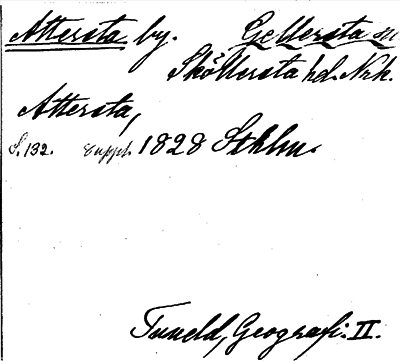 Attersta by. Gellersta sn
Sköllersta hd. Nrk.
Attersta,
S. 132. uppl. 1828 Sthlm.
Tuneld, Geografi. II.